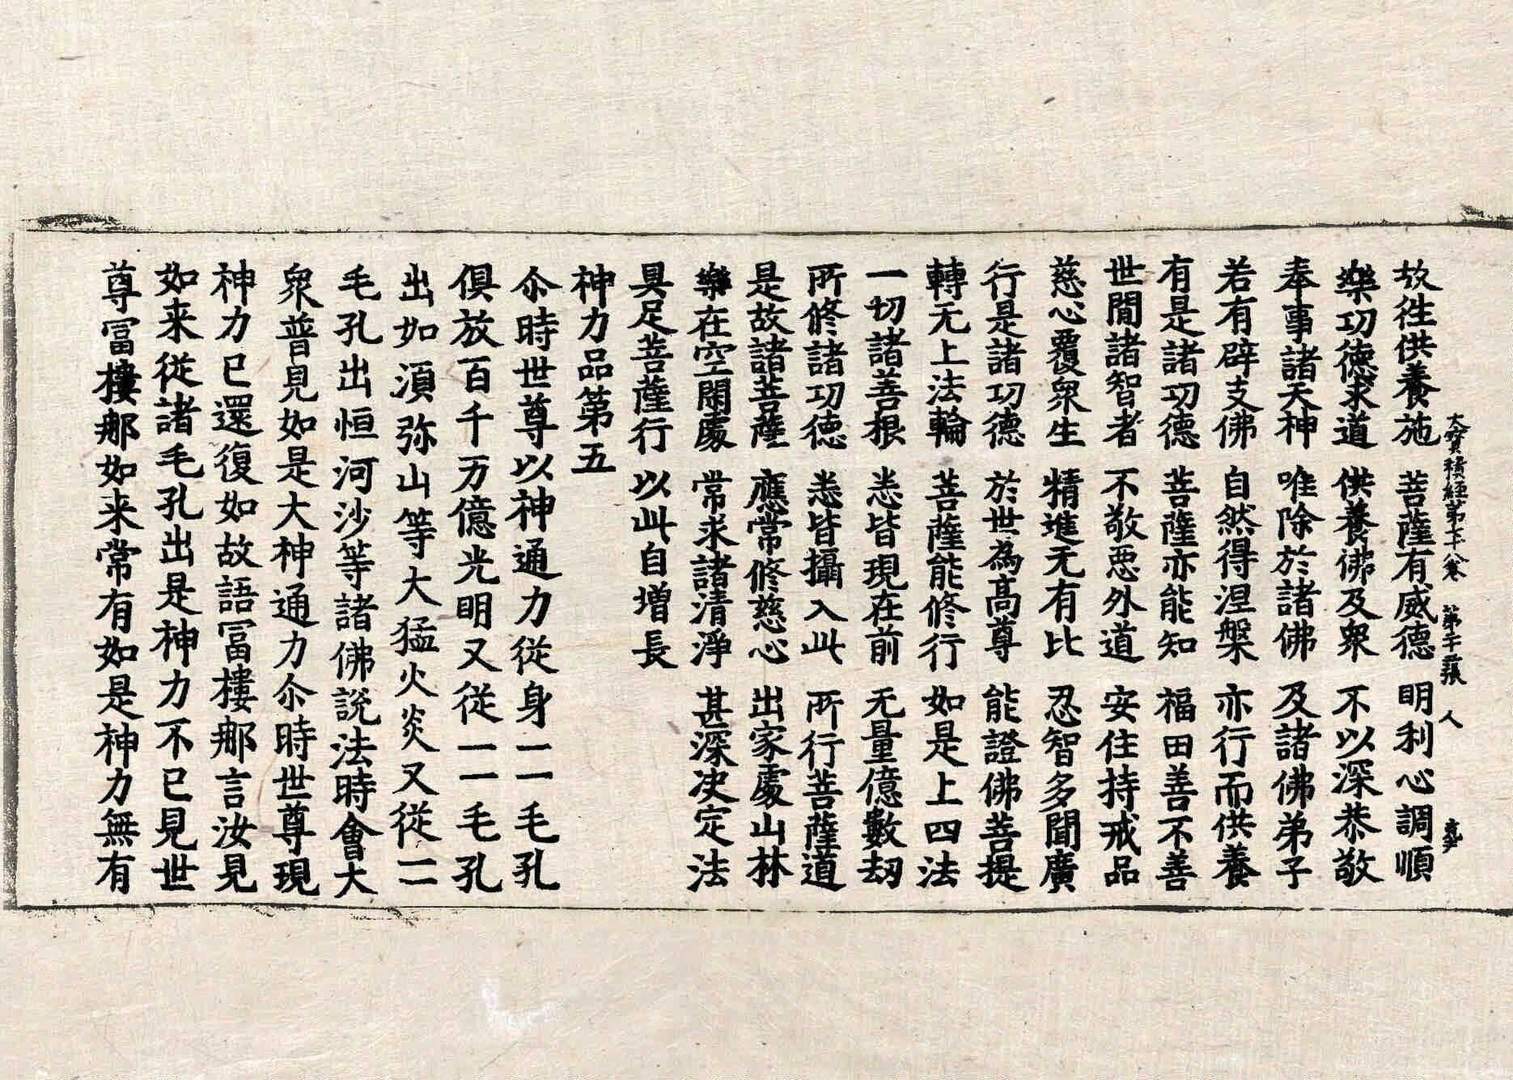 故往供養施　菩薩有威德　明利心調順
樂功德求道　供養佛及衆　不以深恭敬
奉事諸天神　唯除於諸佛　及諸佛弟子
若有辟支佛　自然得涅槃　亦行而供養
有是諸功德　菩薩亦能知　福田善不善
世間諸智者　不敬惡外道　安住持戒品
慈心覆衆生　精進无有比　忍智多聞廣
行是諸功德　於世為高尊　能證佛菩提
轉无上法輪　菩薩能修行　如是上四法
一切諸善根　悉皆現在前　无量億數劫
所修諸功德　悉皆攝入此　所行菩薩道
是故諸菩薩　應常修慈心　出家處山林
樂在空閑處　常求諸清淨　甚深决定法
具足菩薩行　以此自增長
神力品第五
尒時世尊以神通力從身一一毛孔
俱放百千万億光明又從一一毛孔
出如須弥山等大猛火炎又從一一
毛孔出恒河沙等諸佛說法時會大
衆普見如是大神通力尒時世尊現
神力已還復如故語冨樓那言汝見
如来從諸毛孔出是神力不已見世
尊冨樓那如来常有如是神力無有